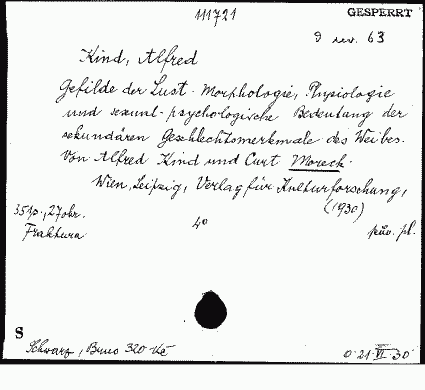 111721
GESPERRT
9 nov. 63
Kind, Alfred
Gefilde der Lust. Morphologie, Physiologie
und sexual-psychologische Bedeutung der
sekundären Geschlechtsmerkmale des Weibes.
Von Alfred Kind und Curt Moreck.
Wien, Leipzig, Verlag für Kulturforschung,
(1930)
351 p., 27 obr.
4°
Fraktura
pův. pl.
S
Schwarz, Bruno 320 Kč
0·21·VI·30